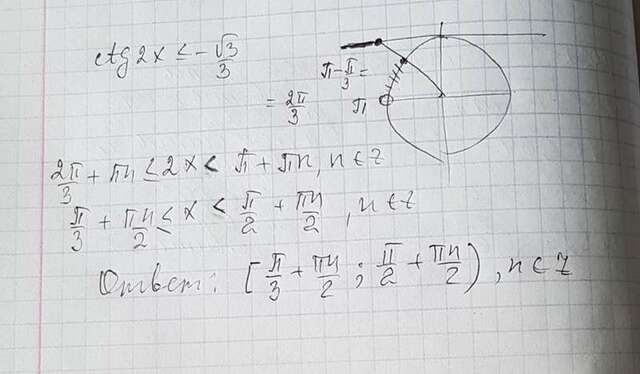 ctg 2x ≤ -√3/3
π - π/3 =
= 2π/3
π
2π/3 + πn ≤ 2x < π + πn, n ∈ Z
π/3 + πn/2 ≤ x < π/2 + πn/2, n ∈ Z
Ответ: [π/3 + πn/2 ; π/2 + πn/2), n ∈ Z